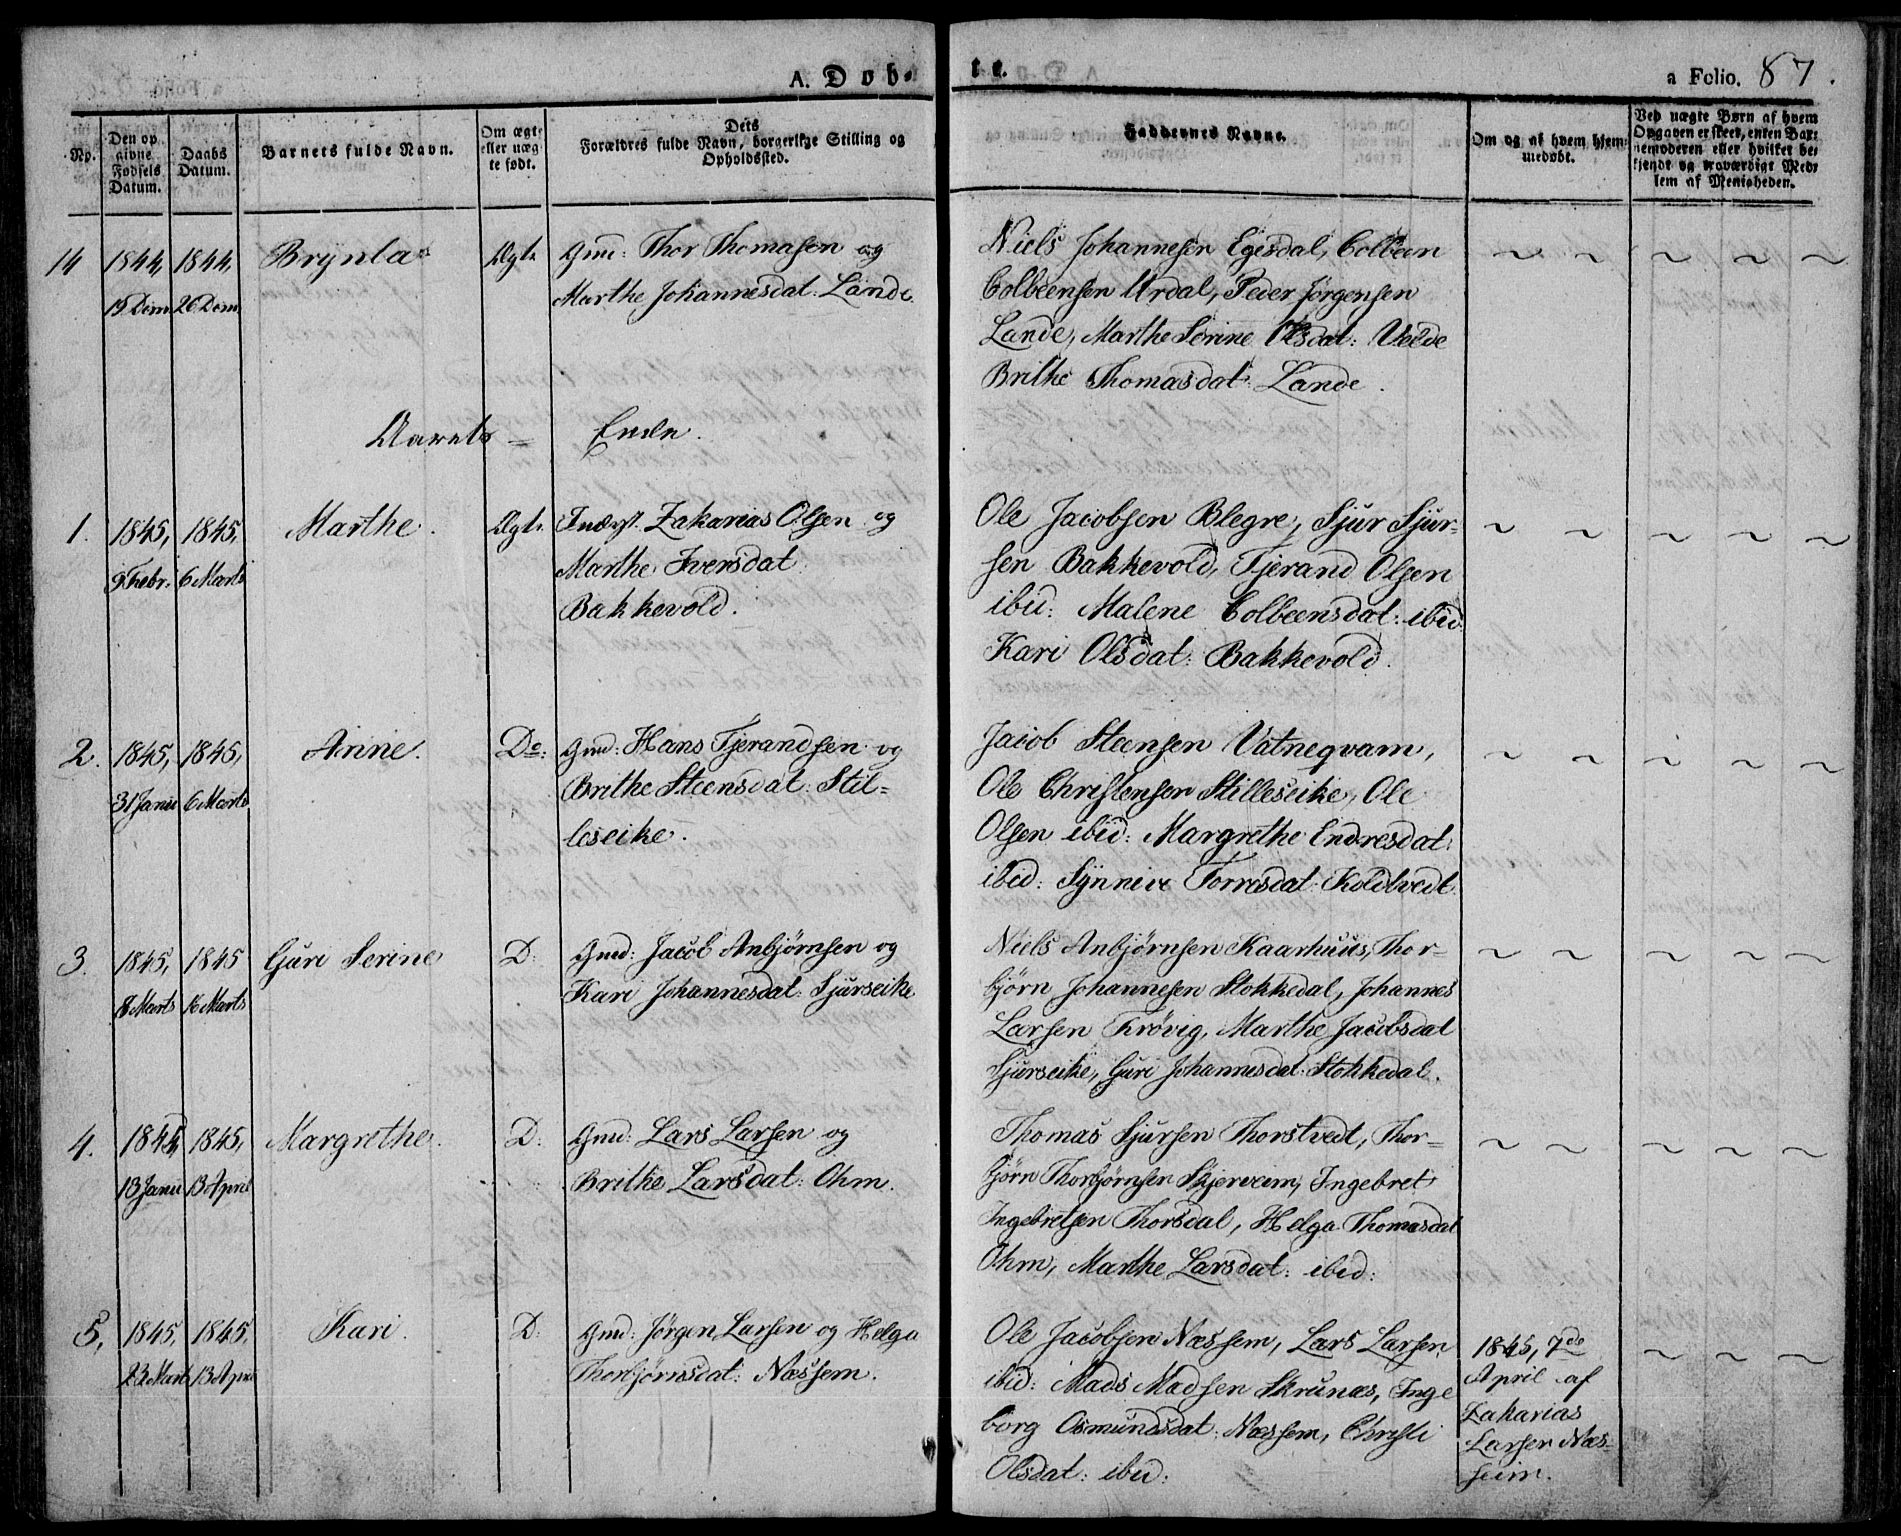 A. Døb-
te.
a Folio. 87.
No.
Den op
givne
Fødsels
Datum.
Daabs
Datum.
Barnets fulde Navn.
Om ægte
eller uæg-
te født.
Dets
Forældres fulde Navn, borgerlige Stilling og
Opholdssted.
Faddernes Navne.
Om og af hvem hjem-
medøbt.
Ved uægte Børn af hvem
Opgaven er skeet, enten Bar-
nemoderen eller hvilket be-
kjendt og troværdigt Med-
lem af Menigheden.
14 1844, 1844, Brynla Ægte Gmd: Thor Thomasen og
19 Dcm 26 Dcm Marthe Johannesdat: Lande
Niels Johannesen Egesdal, Colbeen
Colbeensen Urdal, Peder Jørgensen
Lande, Marthe Serine Olsdat: Velde
Brithe Thomasdat: Lande.
Aarets = Ende.
1. 1845, 1845, Marthe. Ægte Inderst. Zakarias Olsen og
9 Febr: 6 Marts Marthe Iversdat
Bakkevold.
Ole Jacobsen Blegre, Sjur Sjur-
sen Bakkevold, Tjerand Olsen
ibid: Malene Colbeensdat: ibid:
Kari Olsdat: Bakkevold.
2. 1845, 1845, Anne. Do: Gmd: Hans Tjerandsen og
31 Janu 6 Marts Brithe Steensdat: Stil=
leseike.
Jacob Steensen Vatneqvam,
Ole Christensen Stilleseike, Ole
Olsen ibid: Margrethe Endresdat:
ibid: Synneve Torresdat: Koldtvedt
3. 1845, 1845 Guri Serine D: Gmd: Jacob Anbjørnsen og
8 Marts 16 Marts Kari Johannesdat: Sjurseike
Niels Anbjørnsen Kaarhuus, Thor-
bjørn Johannesen Stokkedal, Johannes
Larsen Krøvig, Marthe Jacobsdat
Sjurseike, Guri Johannesdat: Stokkedal.
4. 1845, 1845, Margrethe. D: Gmd: Lars Larsen og
13 Janu 13 April Brithe Larsdat: Ohm.
Thomas Sjursen Thorstvedt, Thor-
bjørn Thorbjørnsen Skjerveim, Ingebret
Ingebretsen Thorsdal, Helga Thomasdat
Ohm, Marthe Larsdat: ibid:
5, 1845, 1845, Kari. D: Gmd: Jørgen Larsen og Helga
23 Marts 13 April Thorbjørnsdat: Næssem.
Ole Jacobsen Næssem, Lars Larsen
ibid: Mads Madsen Skrunæs, Inge
borg Osmundsdat: Næssem, Christi
Olsdat: ibid:
1845, 7de
April af
Zakarias
Larsen Næs-
heim.